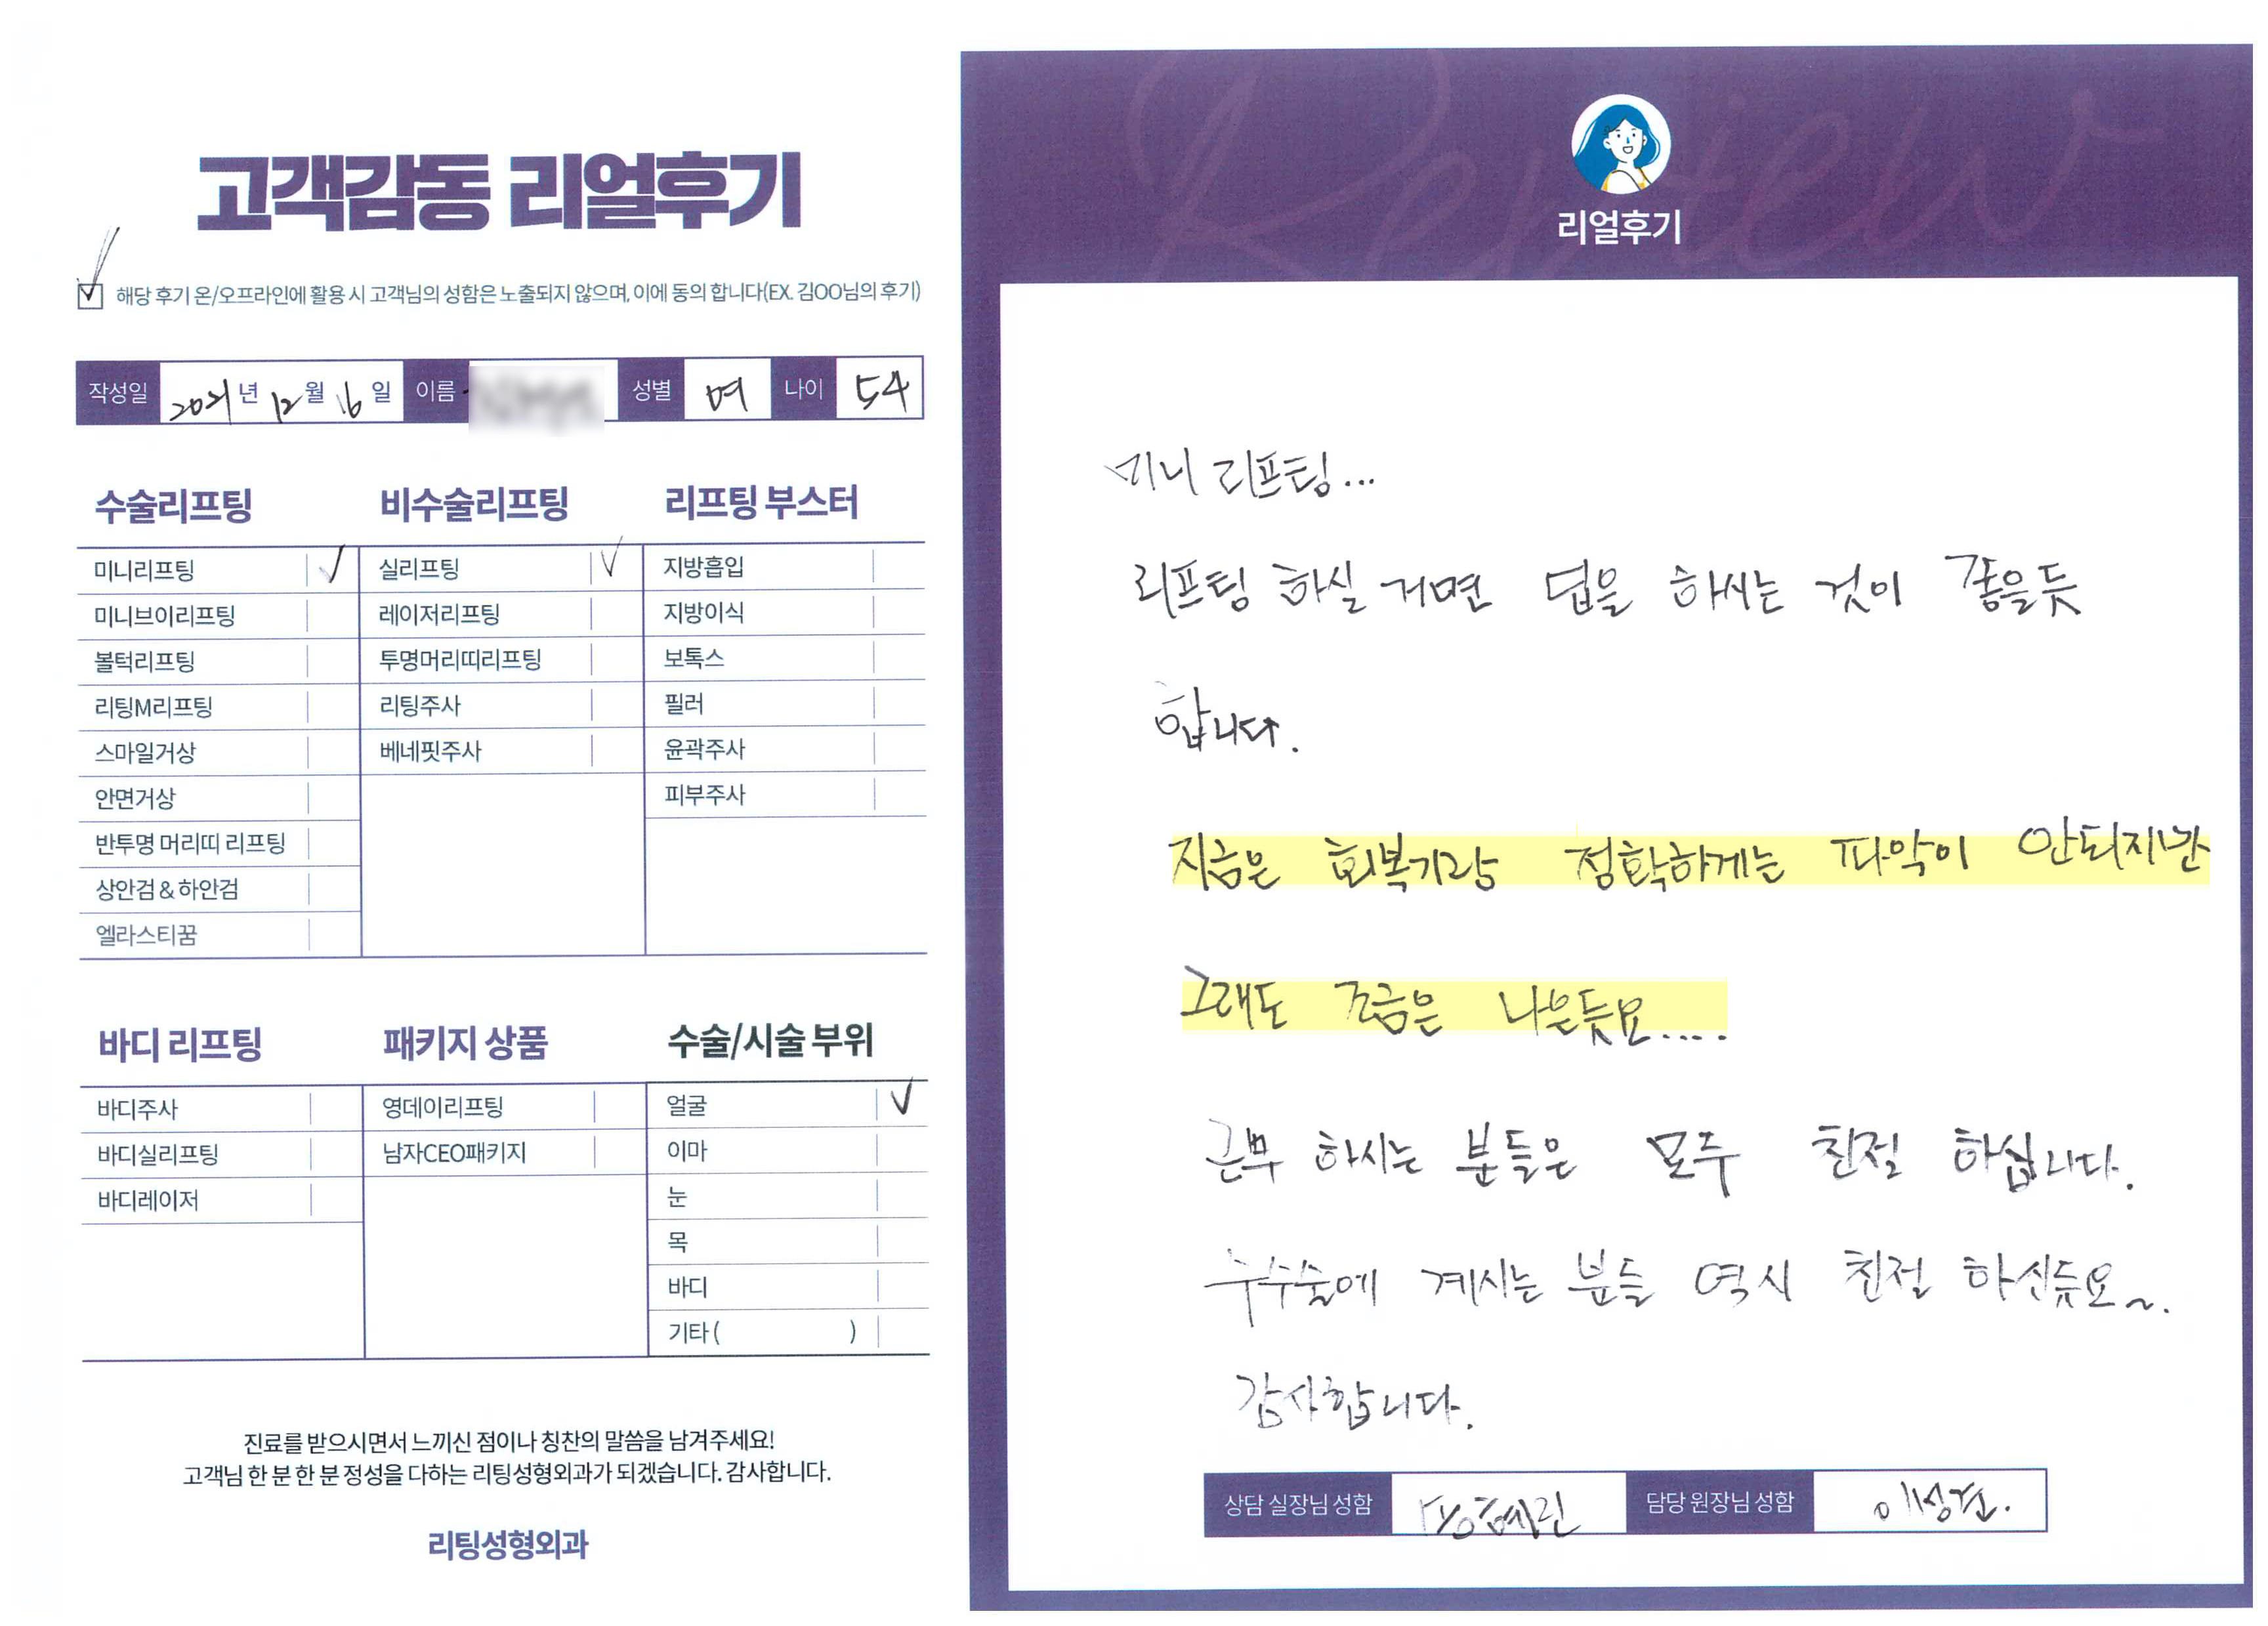 고객감동 리얼후기
해당 후기 온/오프라인에 활용 시 고객님의 성함은 노출되지 않으며, 이에 동의 합니다(EX. 김OO님의 후기)
작성일 2021년 12월 16일 이름 성별 여 나이 54
수술리프팅
미니리프팅 ✓
미니브이리프팅
볼턱리프팅
리팅M리프팅
스마일거상
안면거상
반투명 머리띠 리프팅
상안검 & 하안검
엘라스티꿈
비수술리프팅
실리프팅 ✓
레이저리프팅
투명머리띠리프팅
리팅주사
베네핏주사
리프팅 부스터
지방흡입
지방이식
보톡스
필러
윤곽주사
피부주사
바디 리프팅
바디주사
바디실리프팅
바디레이저
패키지 상품
영데이리프팅
남자CEO패키지
수술/시술 부위
얼굴 ✓
이마
눈
목
바디
기타 ( )
진료를 받으시면서 느끼신 점이나 칭찬의 말씀을 남겨주세요!
고객님 한 분 한 분 정성을 다하는 리팅성형외과가 되겠습니다. 감사합니다.
리팅성형외과
Review
리얼후기
미니 리프팅...
리프팅 하실 거면 하시는 것이 좋을듯
합니다.
지금은 회복기라 정확하게는 파악이 안되지만
그래도 조금은 나은듯요.....
근무 하시는 분들은 모두 친절 하십니다.
계시는 분들 역시 친절 하신듯요~.
감사합니다.
상담 실장님 성함 담당 원장님 성함